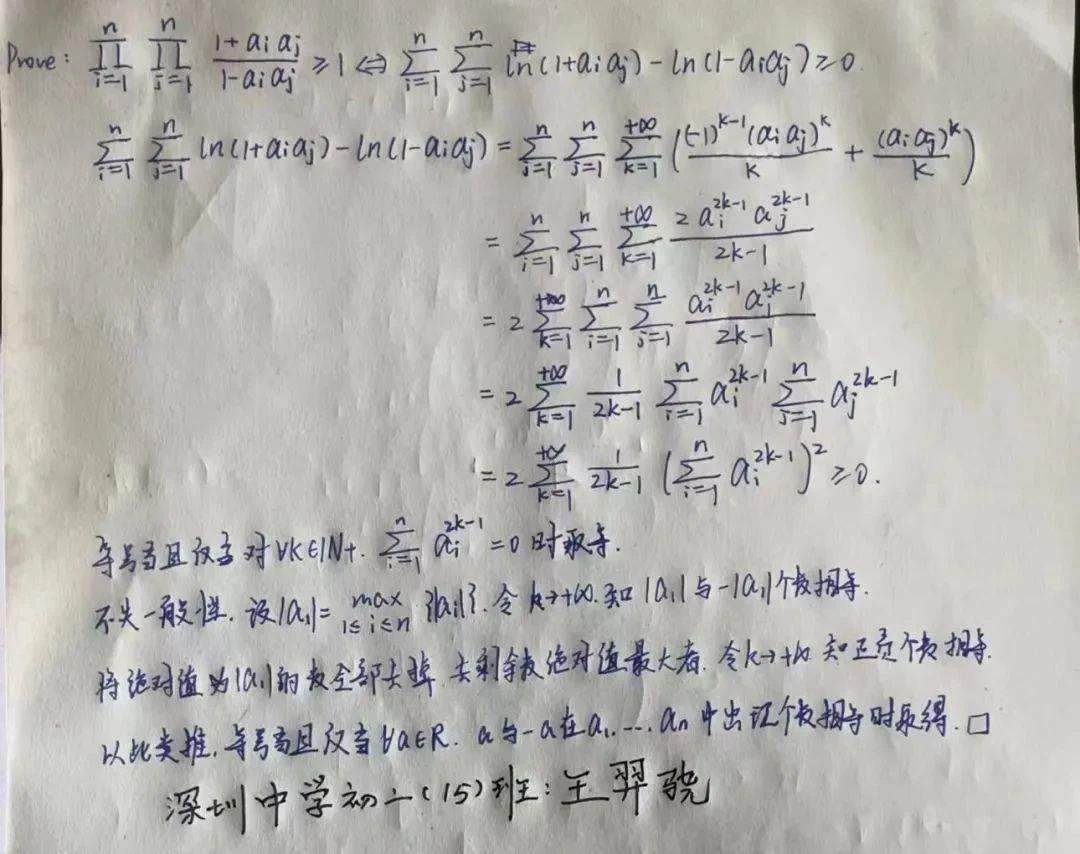 Prove: ∏_{i=1}^{n} ∏_{j=1}^{n} \frac{1+a_i a_j}{1-a_i a_j} ≥ 1 ⇔ ∑_{i=1}^{n} ∑_{j=1}^{n} ln(1+a_i a_j) - ln(1-a_i a_j) ≥ 0.
∑_{i=1}^{n} ∑_{j=1}^{n} ln(1+a_i a_j) - ln(1-a_i a_j) = ∑_{i=1}^{n} ∑_{j=1}^{n} ∑_{k=1}^{+∞} ( \frac{(-1)^{k-1}(a_i a_j)^k}{k} + \frac{(a_i a_j)^k}{k} )
= ∑_{i=1}^{n} ∑_{j=1}^{n} ∑_{k=1}^{+∞} \frac{2 a_i^{2k-1} a_j^{2k-1}}{2k-1}
= 2 ∑_{k=1}^{+∞} ∑_{i=1}^{n} ∑_{j=1}^{n} \frac{a_i^{2k-1} a_j^{2k-1}}{2k-1}
= 2 ∑_{k=1}^{+∞} \frac{1}{2k-1} ∑_{i=1}^{n} a_i^{2k-1} ∑_{j=1}^{n} a_j^{2k-1}
= 2 ∑_{k=1}^{+∞} \frac{1}{2k-1} (∑_{i=1}^{n} a_i^{2k-1})^2 ≥ 0.
等号当且仅当对∀k∈N+. ∑_{i=1}^{n} a_i^{2k-1} = 0 时取等.
不失一般性. 设|a_1| = max_{1≤i≤n} {|a_i|}. 令k→+∞. 知|a_1|与-|a_1|个数相等.
将绝对值为|a_1|的数全部去掉. 去剩余数绝对值最大者. 令k→+∞ 知正负个数相等.
以此类推. 等号当且仅当∀a∈R. a与-a在a_1, ..., a_n中出现个数相等时取得. □
深圳中学初二(15)班: 王羿骁